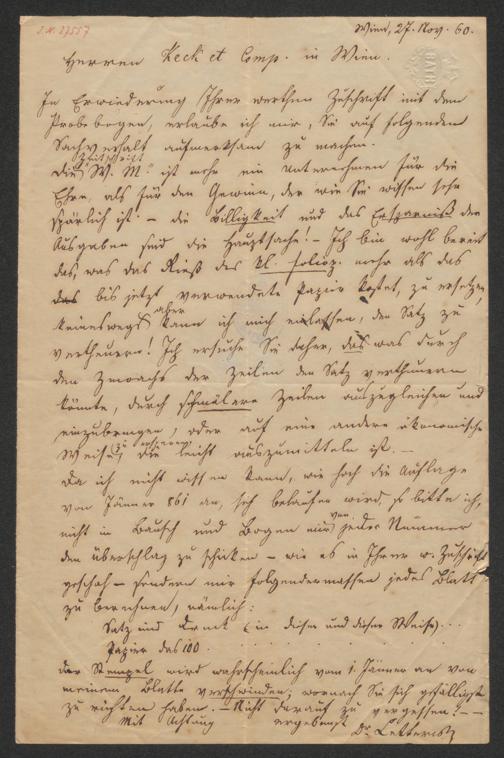 I.N. 27557
Wien, 27. Nov. 60.
Herren Keck et Comp. in Wien.
In Erwiederung Ihrer werthen Zuschrift mit dem
Probebogen, erlaube ich mir, Sie auf folgenden
Sachverhalt aufmerksam zu machen.
Zeitschrift
Die „W. M." ist mehr ein Unternehmen für die
Ehre als für den Gewinn, der wie Sie wissen sehr
spärlich ist. – die Billigkeit und das Ersparniß der
Ausgaben sind die Hauptsache. – Ich bin wohl bereit
das, was das Rieß des kl. mehr als das
das bis jetzt verwendete Papier kostet, zu ersetzen,
aber
keineswegs kann ich mich einlassen, den Satz zu
vertheuern! Ich ersuche Sie daher, das was durch
den Zuwachs der Zeilen den Satz vertheuern
könnte, durch schmälere Zeilen auszugleichen und
einzubringen, oder auf eine andere ökonomische
Weise, die leicht auszumitteln ist. –
Da ich nicht wissen kann, wie hoch die Auflage
von Jänner 861 an, sich belaufen wird, so bitte ich,
von
nicht in Bausch und Bogen mir jeder Nummer
den Überschlag zu schicken – wie es in Ihrer w. Zuschrift
geschah – sondern mir folgendermassen jedes Blatt
zu berechnen, nämlich:
Satz und Druck (in dieser und dieser Weise) . . .
Papier das 100 . . . .
der Stempel wird wahrscheinlich vom 1. Jänner an von
meinem Blatte verschwinden, wornach Sie sich gefälligst
zu richten haben. – Nicht darauf zu vergessen! – –
Mit Achtung ergebenst
Dr. Letteris